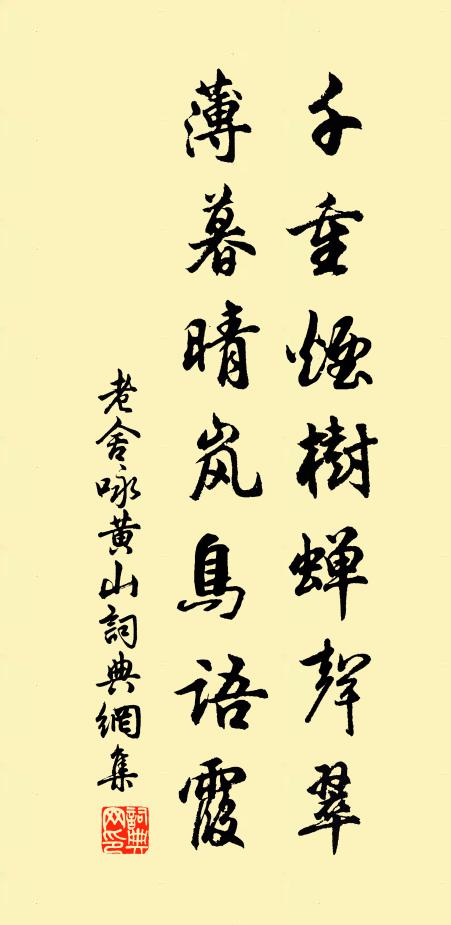 千重煙樹蝉聲翠
薄暮晴岚鳥語霞
老舍咏黄山詞典網集
詞典网印